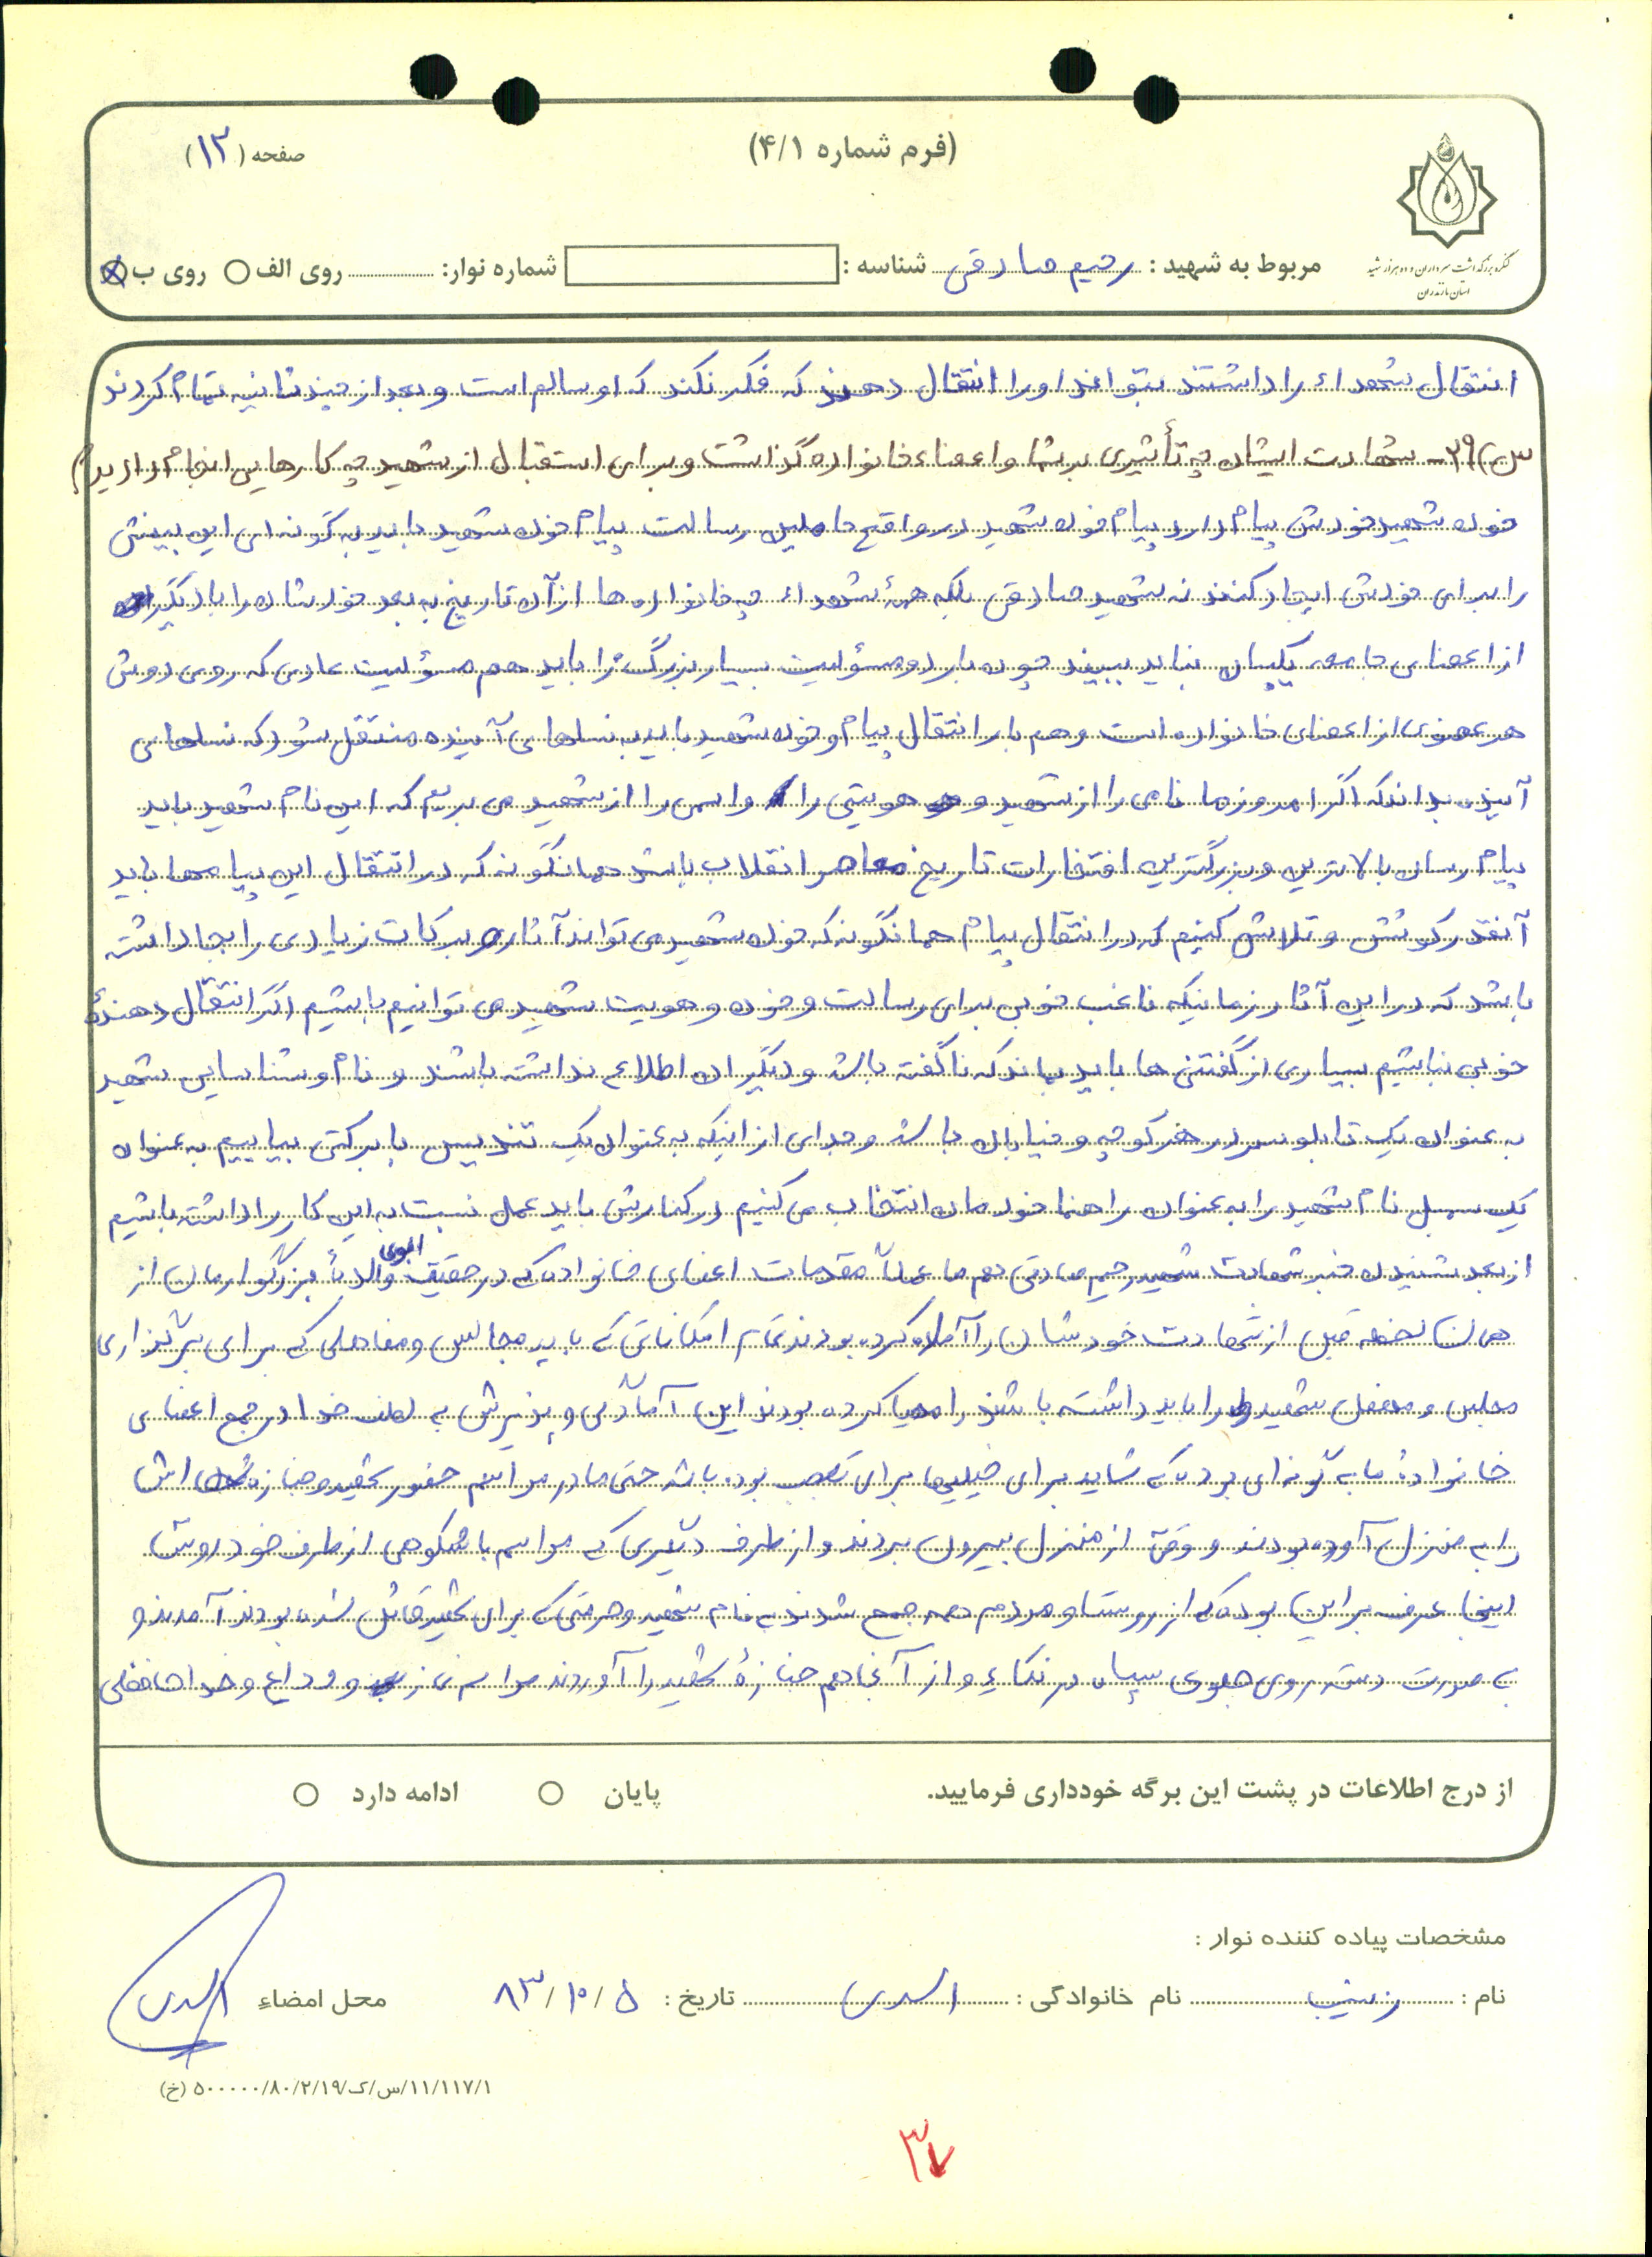 (فرم شماره ۴/۱)
صفحه (۱۲)
کنگره بزرگداشت سرداران و ده هزار شهید
استان مازندران
مربوط به شهید : رحیم صادقی شناسه : شماره نوار: روی الف روی ب
انتقال شهداء را داشتند بتوانند او را انتقال دهند که فکر نکند که او سالم است و بعد از چند ثانیه تمام کردند
س) ۲۹- شهادت ایشان چه تأثیری بر شما و اعضاء خانواده گذاشت و برای استقبال از شهید چه کارهایی انجام دادید؟
خون شهید خودش پیام دارد پیام خون شهید در واقع حاملین رسالت پیام خون شهید باید به گونه ای این بینش
را برای خودش ایجاد کنند نه شهید صادقی بلکه همۀ شهداء چه خانواده ها از آن تاریخ به بعد خودشان را با دیگر
از اعضای جامعه یکسان نباید ببیند چون بار دو مسؤلیت بسیار بزرگ را باید هم مسؤلیت عادی که روی دوش
هر عضوی از اعضای خانواده است و هم بار انتقال پیام و خون شهید باید به نسلهای آینده منتقل شود که نسلهای
آینده بدانند که اگر امروز ما نامی را از شهید و هویتی را و اسمی را از شهید می بریم که این نام شهید باید
پیام رسان بالاترین و بزرگترین افتخارات تاریخ معاصر انقلاب باشد همانگونه که در انتقال این پیامها باید
آنقدر کوشش و تلاش کنیم که در انتقال پیام همانگونه که خون شهید می تواند آثار و برکات زیادی را بجا داشته
باشد که در این آثار زمانیکه نائب خوبی برای رسالت و خون و هویت شهید می توانیم باشیم اگر انتقال دهندۀ
خوبی نباشیم بسیاری از گفتنی ها باید بماند که ناگفته باشد و دیگران اطلاع نداشته باشند و نام و شناسایی شهید
به عنوان یک تابلو سردر هر کوچه و خیابان باشد و جدای از اینکه به عنوان یک تندیس با برکتی بیاییم به عنوان
یک سمبل نام شهید را به عنوان راهنما خودمان انتخاب می کنیم در کنارش باید عمل نسبت به این کار را داشته باشیم
از بعد شنیدن خبر شهادت شهید رحیم صادقی هم ما عملاً مقدمات اعضای خانواده که در حقیقت ابوی والدۀ بزرگوارمان از
همان لحظه قبل از شهادت خودشان را آماده کرده بودند تمام امکاناتی که باید مجالس و محافلی که برای برگزاری
مجلس و محفل شهید را باید داشته باشند را مهیا کرده بودند این آمادگی و پذیرش به لطف خدا در جمع اعضای
خانوادۀ ما به گونه ای بود که شاید برای خیلیها برای تعجب بوده باشد حتی ما در مراسم حضور شهید و جنازه اش
را به منزل آورده بودند و وقتی از منزل بیرون بردند و از طرف دیگری که مراسم باشکوهی از طرف خود روش
اینجا عرف بر این بوده که از روستا و مردم همه جمع شدند به نام شهید و حرمتی که برای شهید قائل شده بودند آمدند و
به صورت دسته روی جلوی سپاه در نکاء و از آنجا هم جنازۀ شهید را آوردند مراسم نماز و وداع و خداحافظی
از درج اطلاعات در پشت این برگه خودداری فرمایید. پایان ادامه دارد
مشخصات پیاده کننده نوار :
نام : زینب نام خانوادگی : اسدی تاریخ : ۸۳/۱۰/۵ محل امضاء اسدی
۱۱/۱۱۷/۱/س/ک/۵۰۰۰۰۰/۸۰/۲/۱۹ (خ)
۳۷